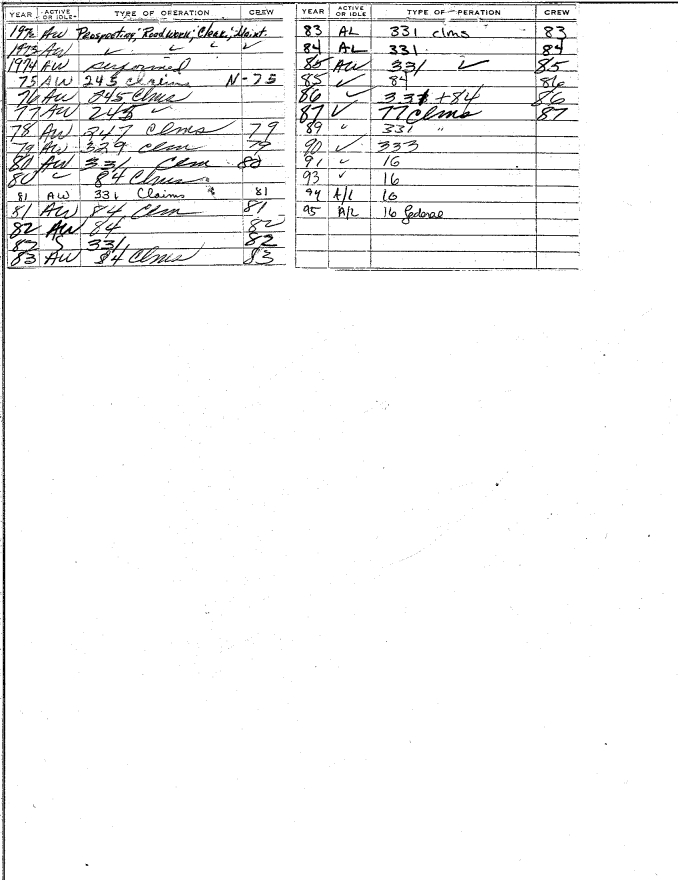 YEAR ACTIVE OR IDLE TYPE OF OPERATION CREW
1972 AW Prospecting, Roadwork; Clear; Maint.
1973 AW ✓ ✓ ✓ ✓
1974 AW performed
75 AW 245 claims N-75
76 AW 245 Clms
77 AW 245 ✓
78 AW 247 Clms 79
79 AW 329 clm 79
80 AW 331 Clm 80
80 ✓ 84 Clms
81 AW 331 Claims 81
81 AW 84 Clm 81
82 AW 84 82
82 331 82
83 AW 84 Clms 83
YEAR ACTIVE OR IDLE TYPE OF OPERATION CREW
83 AL 331 clms 83
84 AL 331 84
85 AW 331 ✓ 85
85 ✓ 84 86
86 ✓ 331 + 84 86
87 ✓ 77 Clms 87
89 " 331 "
90 ✓ 333
91 ✓ 16
93 ✓ 16
94 A/L 16
95 A/L 16 federal